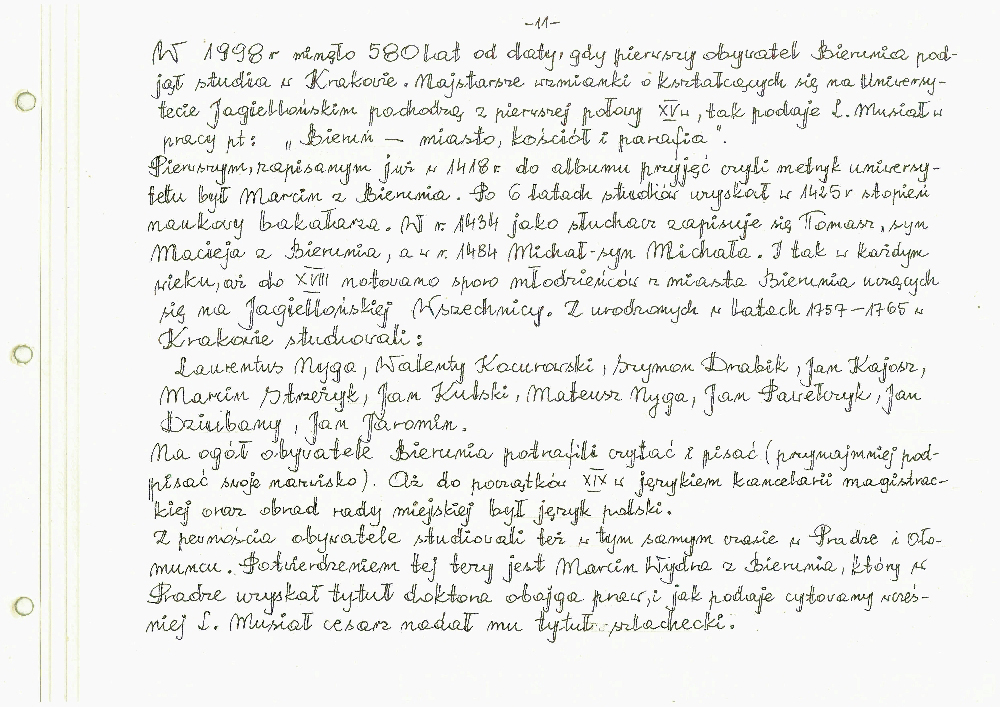 -11-
W 1998 r minęło 580 lat od daty, gdy pierwszy obywatel Bierunia pod-
jął studia w Krakowie. Najstarsze wzmianki o kształcących się na Uniwersy-
tecie Jagiellońskim pochodzą z pierwszej połowy XV w, tak podaje L. Musiał w
pracy pt: „Bieruń — miasto, kościół i parafia".
Pierwszym, zapisanym już w 1418 r do albumu przyjęć czyli metryk uniwersy-
tetu był Marcin z Bierunia. Po 6 latach studiów uzyskał w 1425 r stopień
naukowy bakałarza. W r. 1434 jako słuchacz zapisuje się Tomasz, syn
Macieja z Bierunia, a w r. 1484 Michał-syn Michała. I tak w każdym
wieku, aż do XVIII notowano sporo młodzieńców z miasta Bierunia uczących
się na Jagiellońskiej Wszechnicy. Z urodzonych w latach 1757-1765 w
Krakowie studiowali:
Laurentus Nyga, Walenty Kocurowski, Szymon Drabik, Jan Kajosz,
Marcin Strzeżyk, Jan Kulski, Mateusz Nyga, Jan Pawełczyk, Jan
Dziubany, Jan Jaromin.
Na ogół obywatele Bierunia potrafili czytać i pisać (przynajmniej pod-
pisać swoje nazwisko). Aż do początków XIX w językiem kancelarii magistrac-
kiej oraz obrad rady miejskiej był język polski.
Z pewnością obywatele studiowali też w tym samym czasie w Pradze i Oło-
muńcu. Potwierdzeniem tej tezy jest Marcin Wydra z Bierunia, który w
Pradze uzyskał tytuł doktora obojga praw, i jak podaje cytowany wcześ-
niej L. Musiał cesarz nadał mu tytuł szlachecki.